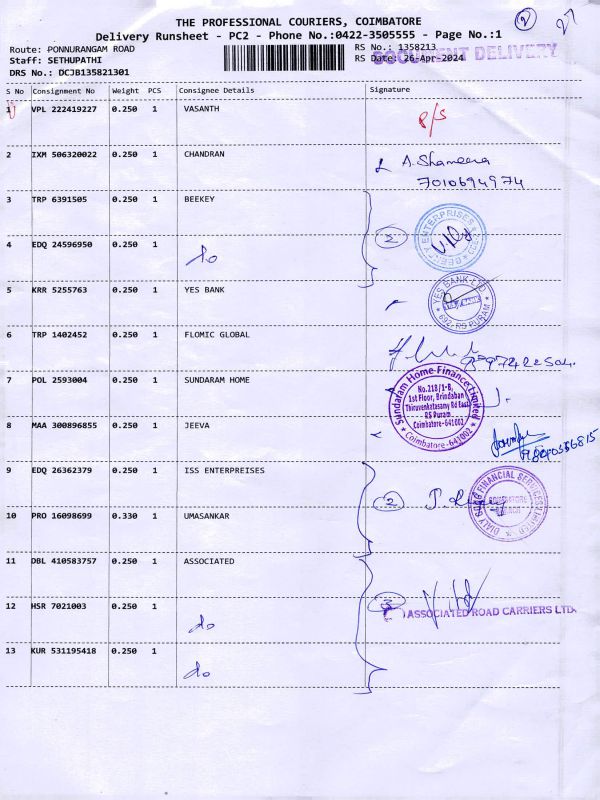 THE PROFESSIONAL COURIERS, COIMBATORE
Delivery Runsheet - PC2 - Phone No.:0422-3505555 - Page No.:1
2
27
Route: PONNURANGAM ROAD
Staff: SETHUPATHI
DRS No.: DCJB135821301
RS No.: 1358213
RS Date: 26-Apr-2024
DOCUMENT DELIVERY
S No Consignment No Weight PCS Consignee Details Signature
1 VPL 222419227 0.250 1 VASANTH P/S
2 IXM 506320022 0.250 1 CHANDRAN A. Shameera
7010694974
3 TRP 6391505 0.250 1 BEEKEY
4 EDQ 24596950 0.250 1 do 2
ENTERPRISES
5 KRR 5255763 0.250 1 YES BANK
YES BANK LTD.
692, RS PURAM
6 TRP 1402452 0.250 1 FLOMIC GLOBAL
7 POL 2593004 0.250 1 SUNDARAM HOME
Sundaram Home Finance Limited
No.218/1-B,
1st Floor, Brindaban
Thiruvenkatasamy Rd East
RS Puram
Coimbatore-641002
Coimbatore-641002
8 MAA 300896855 0.250 1 JEEVA
9 EDQ 26362379 0.250 1 ISS ENTERPREISES
2
FINANCIAL SERVICES LIMITED
10 PRO 16098699 0.330 1 UMASANKAR
11 DBL 410583757 0.250 1 ASSOCIATED
12 HSR 7021003 0.250 1 do 3
ASSOCIATED ROAD CARRIERS LTD.
13 KUR 531195418 0.250 1 do